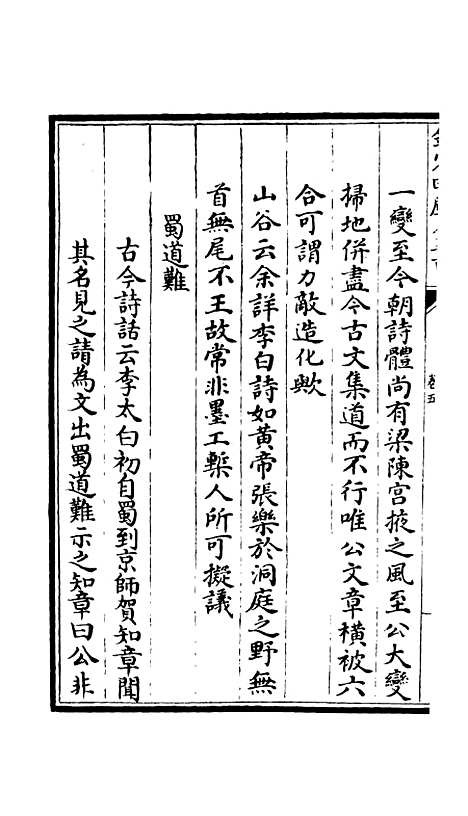 卷五
一變至今朝詩體尚有梁陳宫掖之風至公大變
掃地併盡今古文集遏而不行唯公文章横被六
合可謂力敵造化歟
山谷云余詳李白詩如黄帝張樂於洞庭之野無
首無尾不主故常非墨工槧人所可擬議
蜀道難
古今詩話云李太白初自蜀到京師賀知章聞
其名見之請為文出蜀道難示之知章曰公非